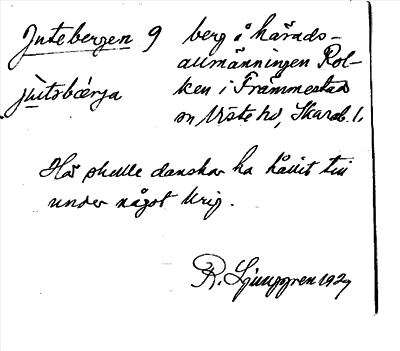 Jutebergen 9 berg å härads-
allmänningen Rol-
jùtəbǽrja ken i Främmestad
sn Viste hd, Skarab. l.
Här skulle danskar ha hållit till
under något krig.
R. Ljunggren 1929